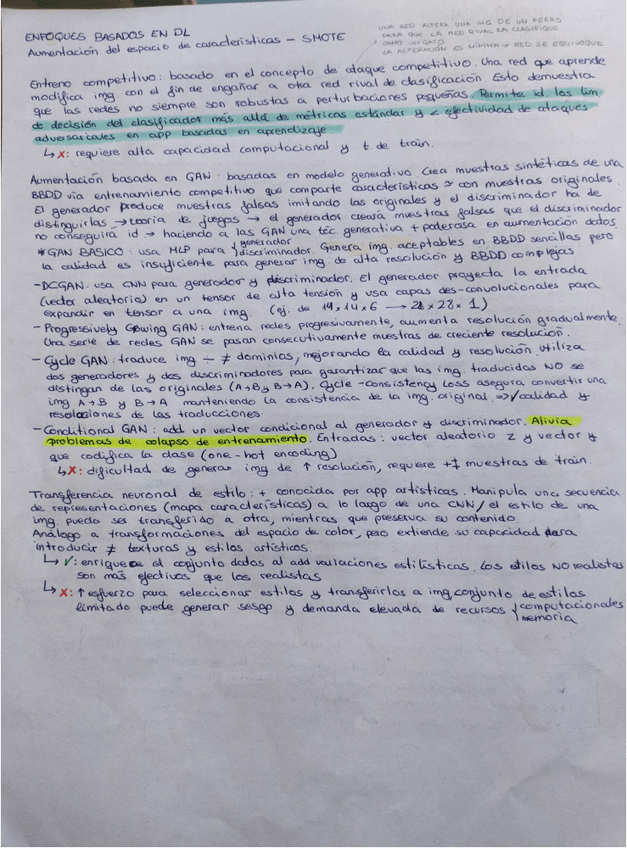 ENFOQUES BASADOS EN DL
Aumentación del espacio de características - SMOTE
UNA RED ALTERA UNA IMG DE UN PERRO
PARA QUE LA RED RIVAL LA CLASIFIQUE
COMO UN GATO
LA ALTERACIÓN ES MÍNIMA → RED SE EQUIVOQUE
Entreno competitivo: basado en el concepto de ataque competitivo. Una red que aprende
modifica img con el fin de engañar a otra red rival de clasificación. Esto demuestra
que las redes no siempre son robustas a perturbaciones pequeñas. Permite id los lim
de decisión del clasificador más allá de métricas estándar y < efectividad de ataques
adversariales en app basadas en aprendizaje.
↳ x: requiere alta capacidad computacional y t de train.
Aumentación basada en GAN: basadas en modelo generativo. Crea muestras sintéticas de una
BBDD vía entrenamiento competitivo que comparte características ≃ con muestras originales.
El generador produce muestras falsas imitando las originales y el discriminador ha de
distinguirlas → teoría de juegos → el generador creará muestras falsas que el discriminador
no conseguirá id → haciendo a las GAN una téc generativa + poderosa en aumentación datos.
* GAN BASICO: usa MLP para generador discriminador Genera img. aceptables en BBDD sencillas pero
la calidad es insuficiente para generar img. de alta resolución y BBDD complejas
- DCGAN: usa CNN para generador y discriminador. El generador proyecta la entrada
(vector aleatorio) en un tensor de alta tensión y usa capas des-convolucionales para
expandir en tensor a una img. (ej. de 14 x 14 x 6 → 28 x 28 x 1)
- Progressively Gowing GAN: entrena redes progresivamente, aumenta resolución gradualmente.
Una serie de redes GAN se pasan consecutivamente muestras de creciente resolución.
- Cycle GAN: traduce img ÷ ≠ dominios, mejorando la calidad y resolución. Utiliza
dos generadores y dos discriminadores para garantizar que las img. traducidas NO se
distingan de las originales (A→B y B→A). Cycle-consistency Loss asegura convertir una
img A→B y B→A manteniendo la consistencia de la img. original. ⇒ ✓ calidad y
resoluciones de las traducciones
- Conditional GAN: add un vector condicional al generador y discriminador. Alivia
problemas de colapso de entrenamiento. Entradas: vector aleatorio z y vector y
que codifica la clase (one-hot encoding)
↳ x: dificultad de generar img de ↑ resolución, requiere muestras de train.
Transferencia neuronal de estilo: + conocida por app artísticas. Manipula una secuencia
de representaciones (mapa características) a lo largo de una CNN / el estilo de una
img. pueda ser transferido a otra, mientras que preserva su contenido.
Análogo a transformaciones del espacio de color, pero extiende su capacidad para
introducir ≠ texturas y estilos artísticos.
↳ ✓: enriquece el conjunto datos al add variaciones estilísticas. Los estilos NO realistas
son más efectivos que los realistas
↳ x: ↑ esfuerzo para seleccionar estilos y transferirlos a img, conjunto de estilos
limitado puede generar sesgo y demanda elevada de recursos computacionales
memoria